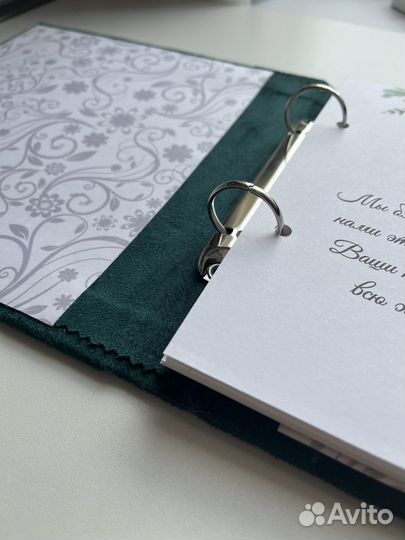 Мы б
нами э
Ваши п
всю ж
Avito